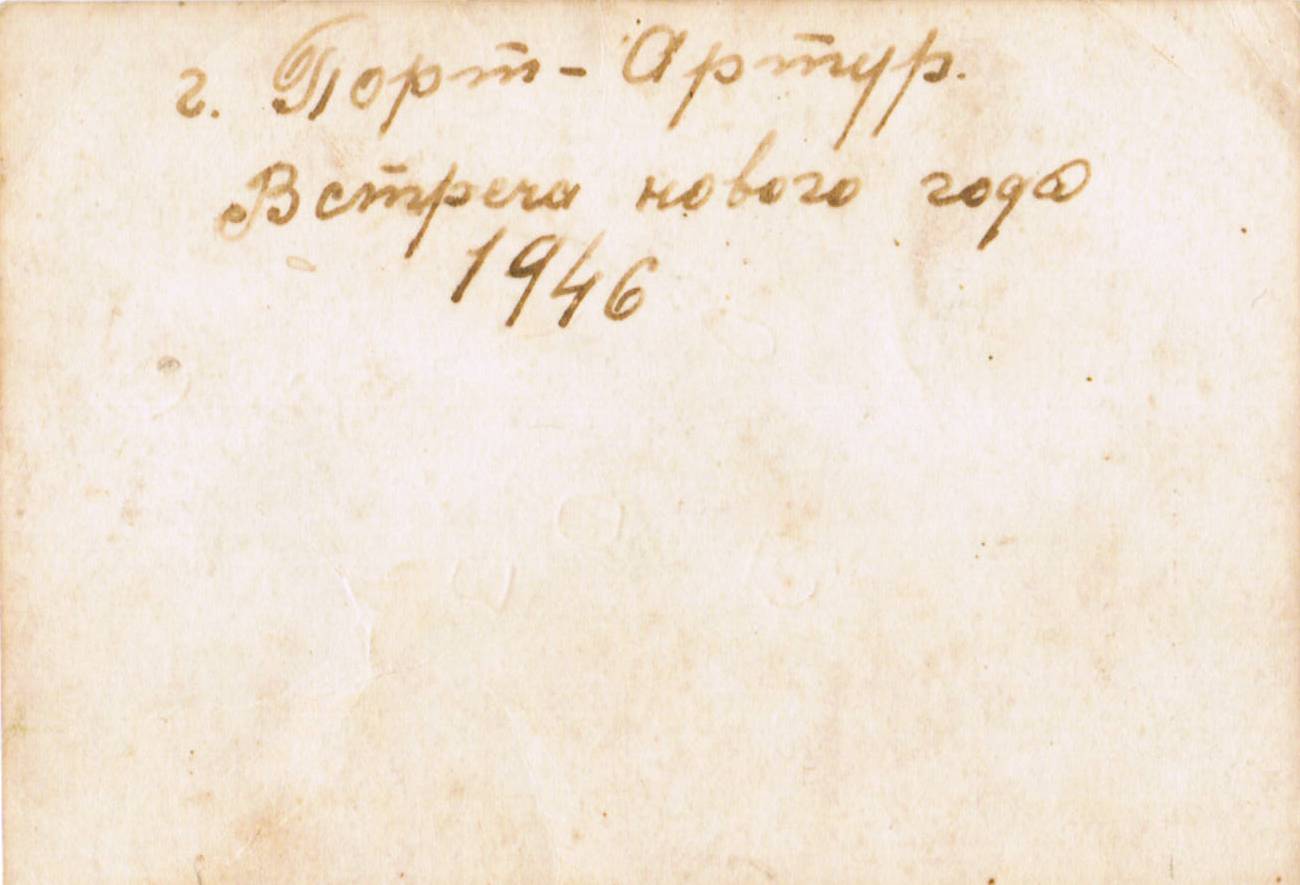 г. Порт-Артур.
Встреча нового года
1946